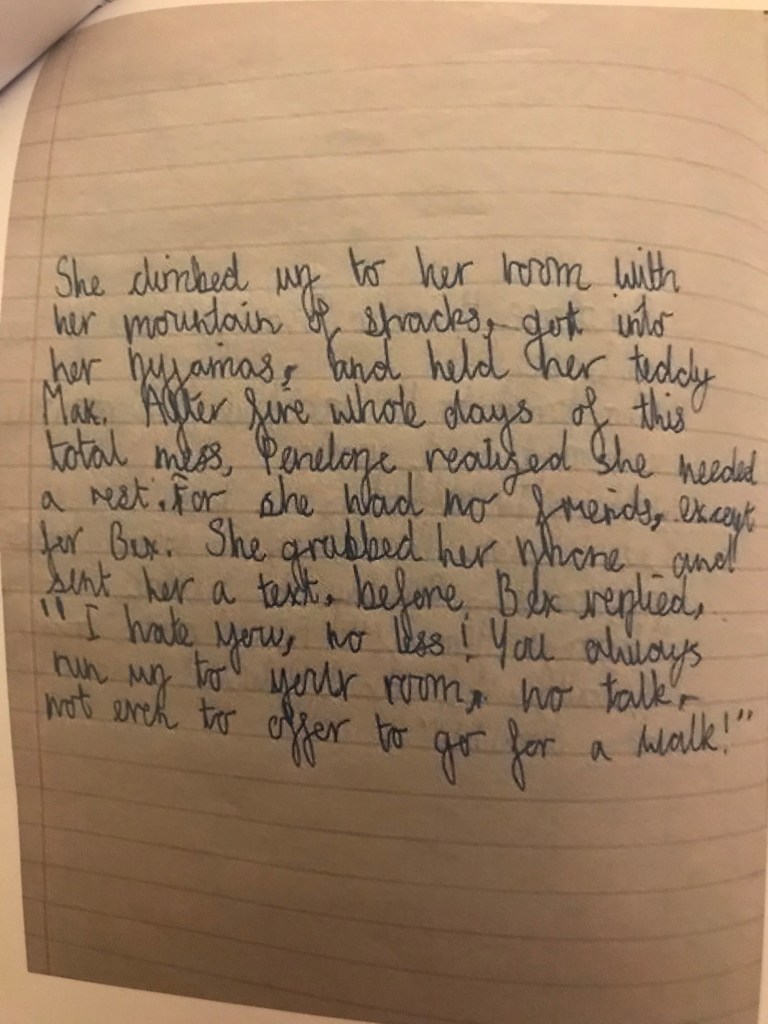 She climbed up to her room with
her mountain of snacks, got into
her pyjamas, and held her teddy
Max. After five whole days of this
total mess, Penelope realized she needed
a rest. For she had no friends, except
for Bex. She grabbed her phone and
sent her a text, before Bex replied,
"I hate you, no less! You always
run up to your room, no talk,
not even to offer to go for a walk!"